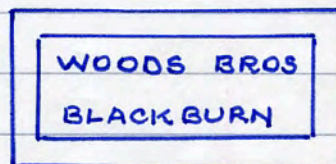 WOODS BROS
BLACKBURN